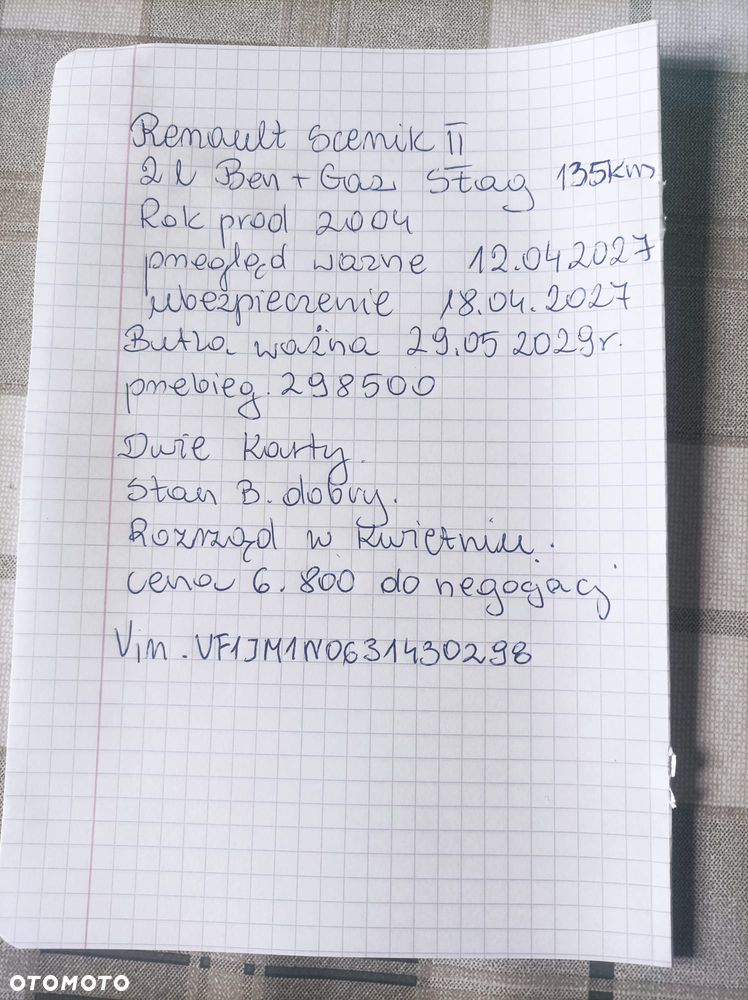 Renault Scenik II
2 l Ben + Gaz Stag 135km
Rok prod 2004
pmegląd wazne 12.04 2027
ubezpieczenie 18.04.2027
Butla ważna 29.05 2029r.
pmebieg. 298500
Dwie Karty.
Stan B. dobry.
Rozrząd w Kwietniu.
cena 6.800 do negogacj
Vin. VF1JM1N0631430298
OTOMOTO